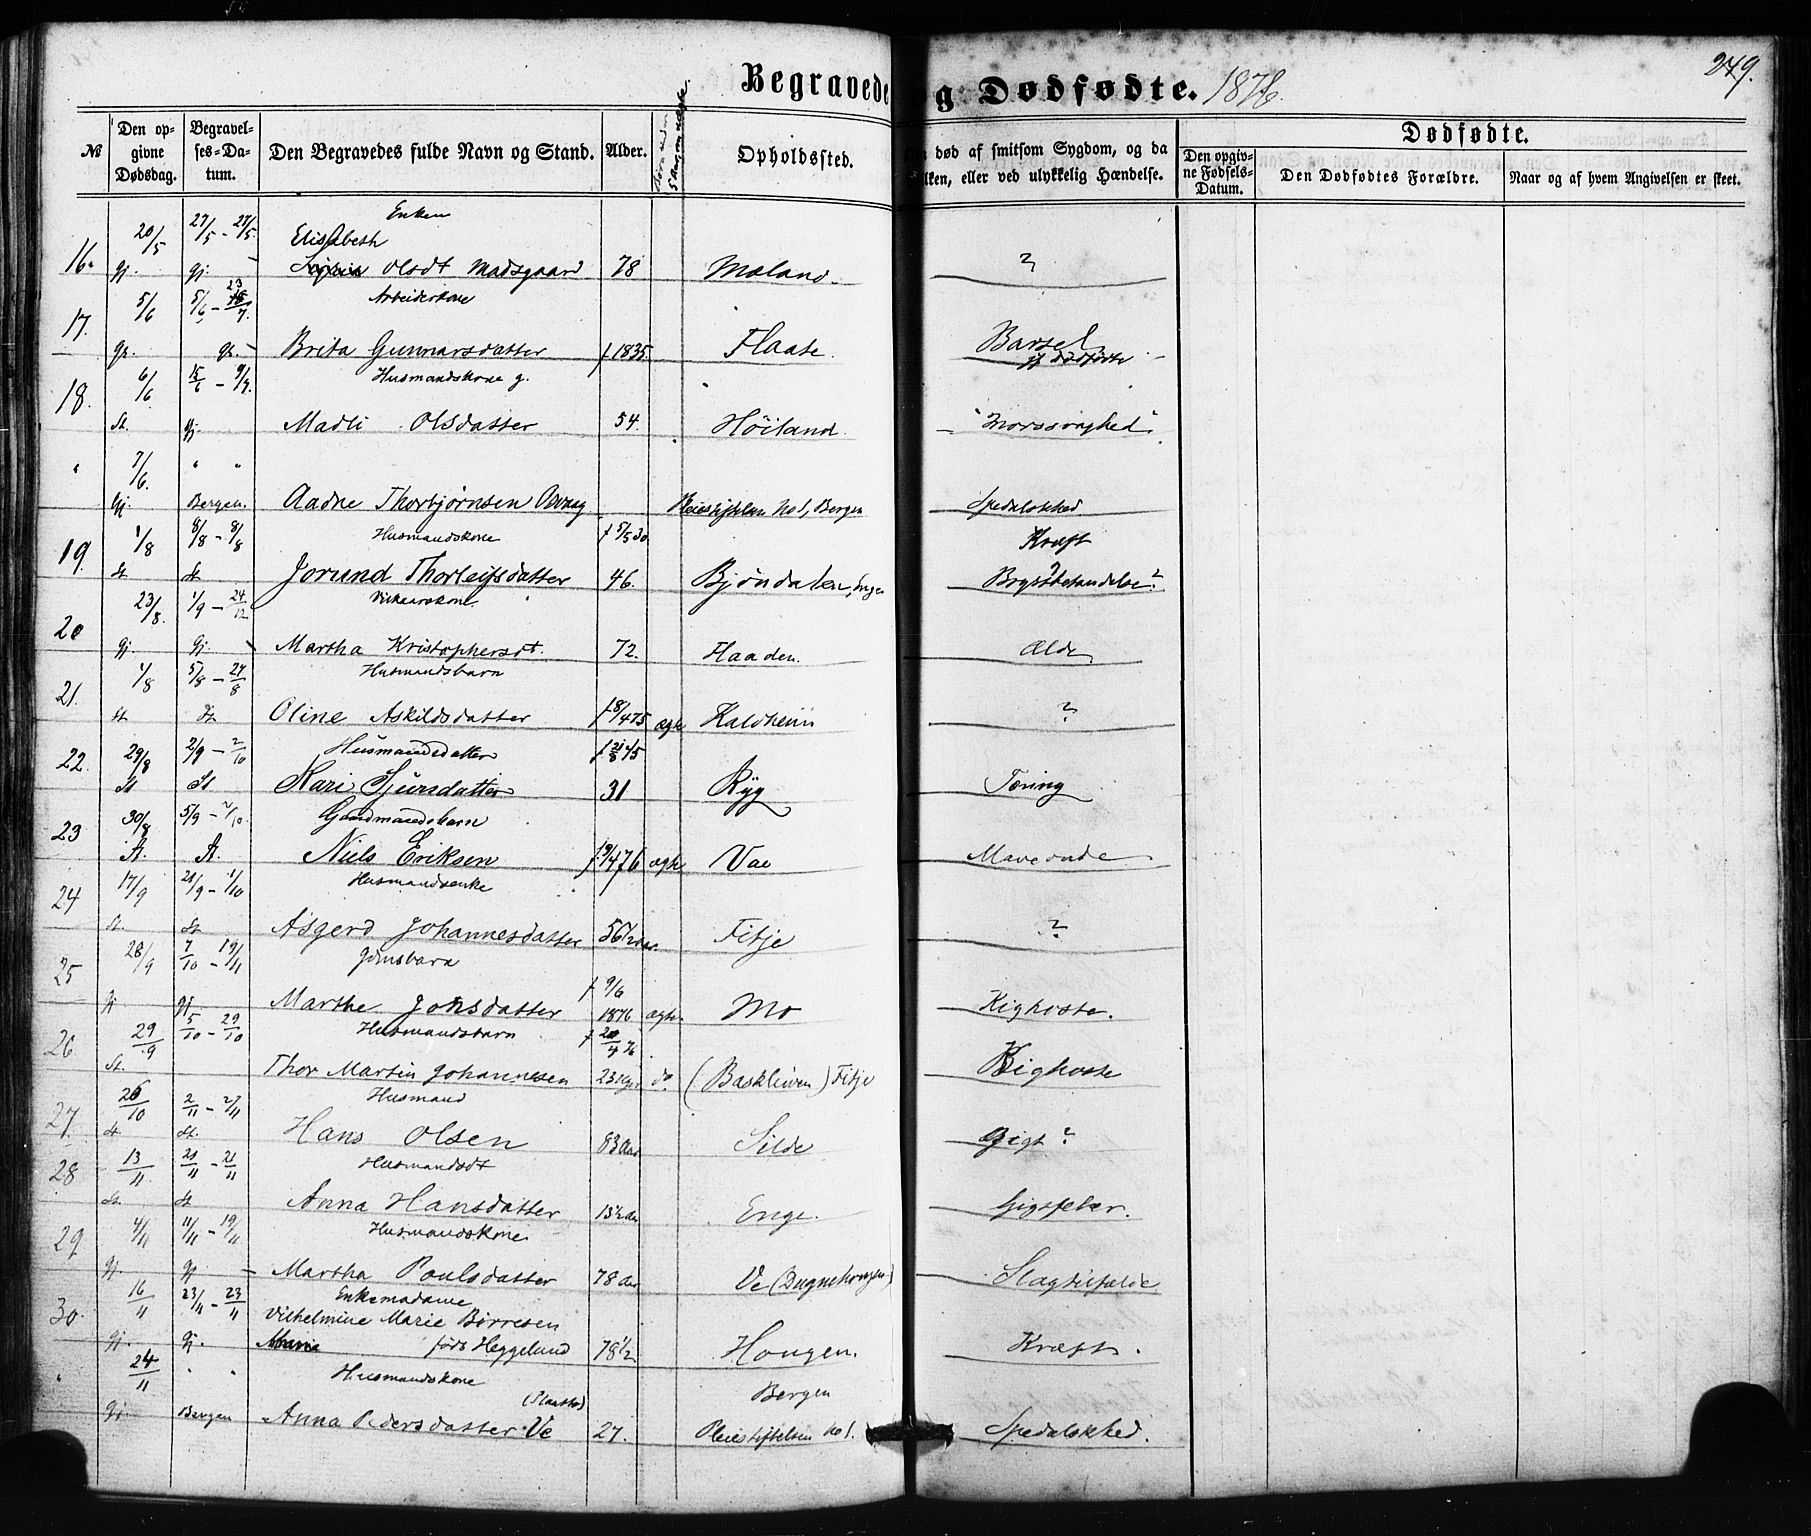 249.
Begravede og Dødfødte. 1876.
№
Den op-
givne
Dødsdag.
Begravel-
ses-Da-
tum.
Den Begravedes fulde Navn og Stand.
Alder.
Opholdssted.
død af smitsom Sygdom, og da
ilken, eller ved ulykkelig Hændelse.
Dødfødte.
Den opgiv-
ne Fødsels-
Datum.
Den Dødfødtes Forældre.
Naar og af hvem Angivelsen er skeet.
20/5 27/5 - 27/5 Enken
Elisabeth
16. gj. gj. - Olsdt Madsgaard 78 Mæland. ?
5/6 5/6 - 23/7 Arbeiderkone
17. gj. gj. - Brita Gunnarsdatter f 1835. Flaate. Barsel
jf dødfødte
6/6 15/6 - 9/7. Husmandskone g.
18. St. gj. Madli Olsdatter 54. Høiland.
" 7/6. " "
gj. Bergen. Aadne Thorbjørnsen Pleiestiftelsen No 1, Bergen Spedalskhed
1/8 8/8 - 8/8 Husmandskone f 5/5 30. Kræft
19. St St Jorund Thorleifsdatter 46. Bjøndalen, ?
23/8. 1/9 - 24/12 Vilkaarskone.
20 gj. gj. - Martha Kristophersdt. 72. Flaaden. Ælde
1/8 5/8 - 27/8 Husmandsbarn
21. St St Oline Askildsdatter f 18/4 75 ægte Kaldheim ?
22. 29/8 2/9 - 2/10 Husmandsdatter f 21/8 45
St St Kari Sjursdatter 31 Ryg Tæring
23 30/8 5/9 - 2/10. Gaardmandsbarn
St. St. Niels Eriksen f. 19/4 76 ægte Vae Maveonde
24 17/9 21/9 - 1/10 Husmandsenke
St. St Asgerd Johannesdatter 56 1/2 aar. Fitje ?
25 28/9 7/10 - 19/11 Jdmsbarn
gj gj. Marthe Jonsdatter f 9/6 1876 ægte Mo Kighoste.
26 29/9 5/10 - 29/10 Husmandsbarn f 20/4 76
St. Thor Martin Johannessen 23 Ug. do (Bakkleiven) Fitje Kighoste
27 26/10 2/11 - 2/11 Husmand
St St. Hans Olsen 83 Aar Silde Gigt ?
28 13/11 21/11 - 21/11 Husmandsdt
St. St Anna Hansdatter 13 1/2 Aar Enge. Gigtfeber.
29 4/11 11/11 - 19/11 Husmandskone
gj. gj - Martha Poulsdatter 78 Aar Ve Slagtilfælde
30. 16/11 23/11 - 23/11 Enkemadame
Vilhelmine Marie Børresen
gj. gj. Marie født Heggelund 78 1/2 Hougen. Kræft.
" 24/11 " " Husmandskone Bergen
gj. Bergen Anna Pedersdatter Ve (Flaathe) 27. Pleiestiftelsen No 1. Spedalskhed.